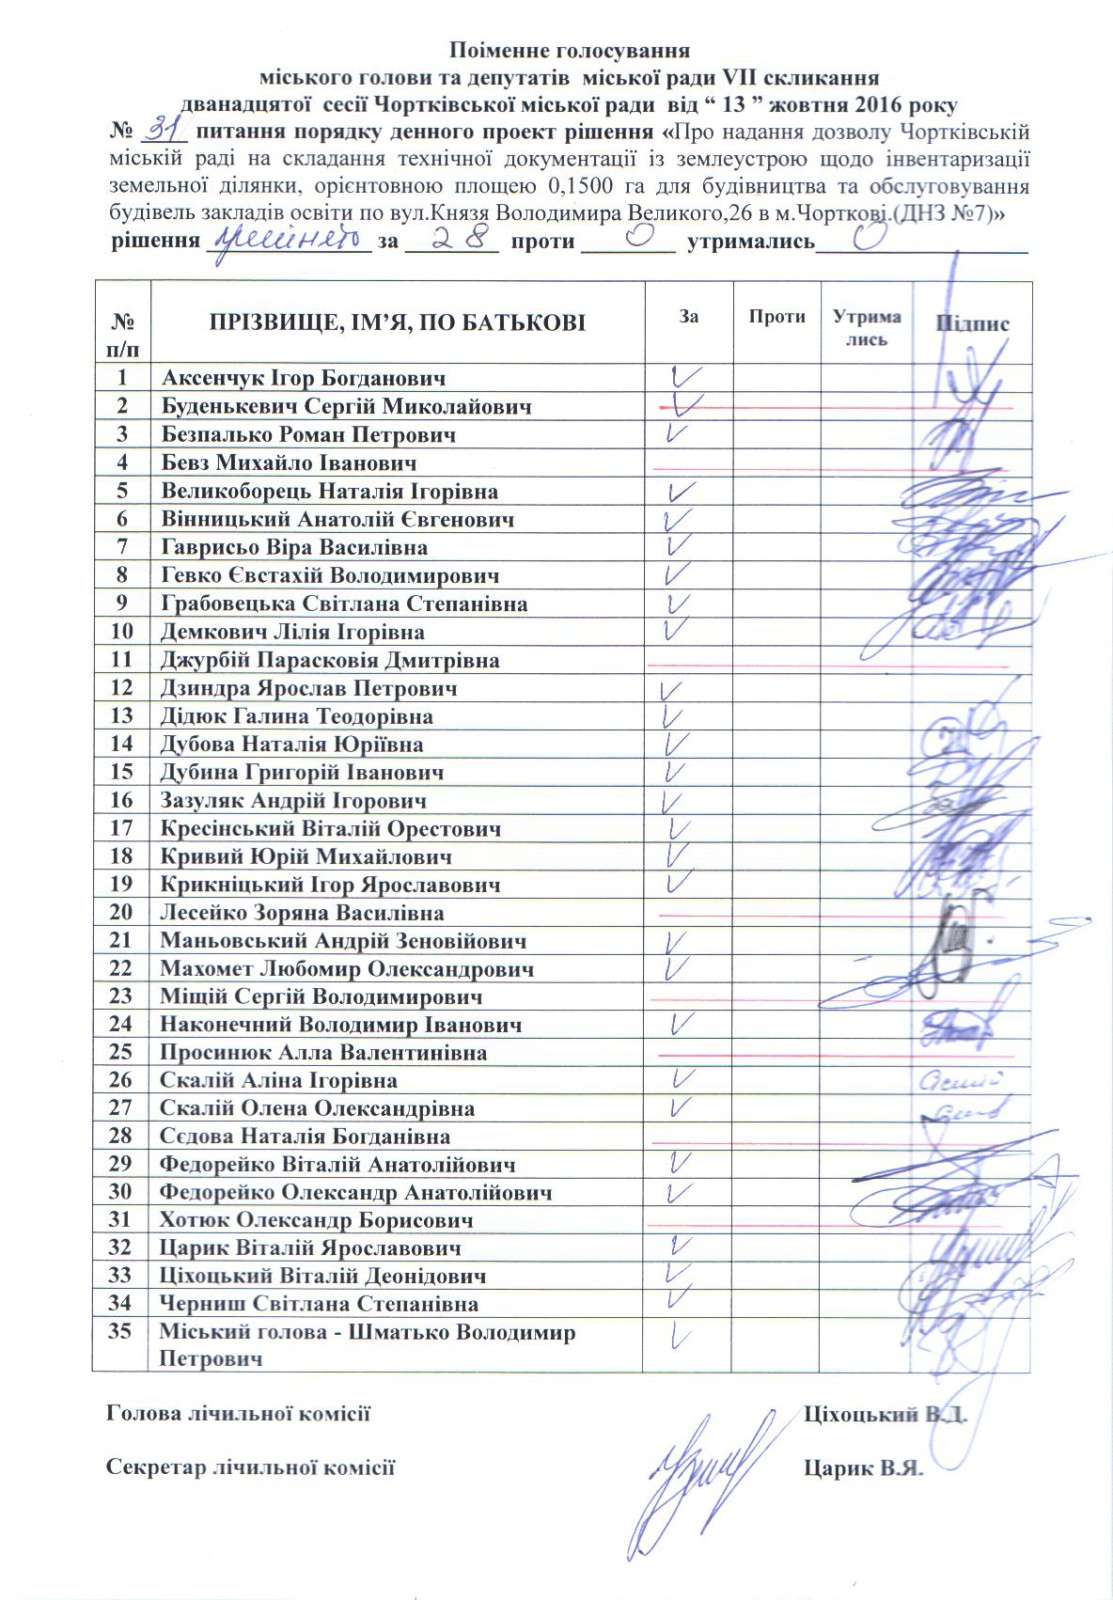 Поіменне голосування
міського голови та депутатів міської ради VII скликання
дванадцятої сесії Чортківської міської ради від “ 13 ” жовтня 2016 року
№ 31 питання порядку денного проект рішення «Про надання дозволу Чортківській
міській раді на складання технічної документації із землеустрою щодо інвентаризації
земельної ділянки, орієнтовною площею 0,1500 га для будівництва та обслуговування
будівель закладів освіти по вул.Князя Володимира Великого,26 в м.Чорткові.(ДНЗ №7)»
рішення прийнято за 28 проти 0 утримались 0
№ п/п ПРІЗВИЩЕ, ІМ’Я, ПО БАТЬКОВІ За Проти Утрима лись Підпис
1 Аксенчук Ігор Богданович
2 Буденькевич Сергій Миколайович
3 Безпалько Роман Петрович
4 Бевз Михайло Іванович
5 Великоборець Наталія Ігорівна
6 Вінницький Анатолій Євгенович
7 Гаврисьо Віра Василівна
8 Гевко Євстахій Володимирович
9 Грабовецька Світлана Степанівна
10 Демкович Лілія Ігорівна
11 Джурбій Парасковія Дмитрівна
12 Дзиндра Ярослав Петрович
13 Дідюк Галина Теодорівна
14 Дубова Наталія Юріївна
15 Дубина Григорій Іванович
16 Зазуляк Андрій Ігорович
17 Кресінський Віталій Орестович
18 Кривий Юрій Михайлович
19 Крикніцький Ігор Ярославович
20 Лесейко Зоряна Василівна
21 Маньовський Андрій Зеновійович
22 Махомет Любомир Олександрович
23 Міщій Сергій Володимирович
24 Наконечний Володимир Іванович
25 Просинюк Алла Валентинівна
26 Скалій Аліна Ігорівна
27 Скалій Олена Олександрівна
28 Сєдова Наталія Богданівна
29 Федорейко Віталій Анатолійович
30 Федорейко Олександр Анатолійович
31 Хотюк Олександр Борисович
32 Царик Віталій Ярославович
33 Ціхоцький Віталій Деонідович
34 Черниш Світлана Степанівна
35 Міський голова - Шматько Володимир
Петрович
Голова лічильної комісії Ціхоцький В.Д.
Секретар лічильної комісії Царик В.Я.